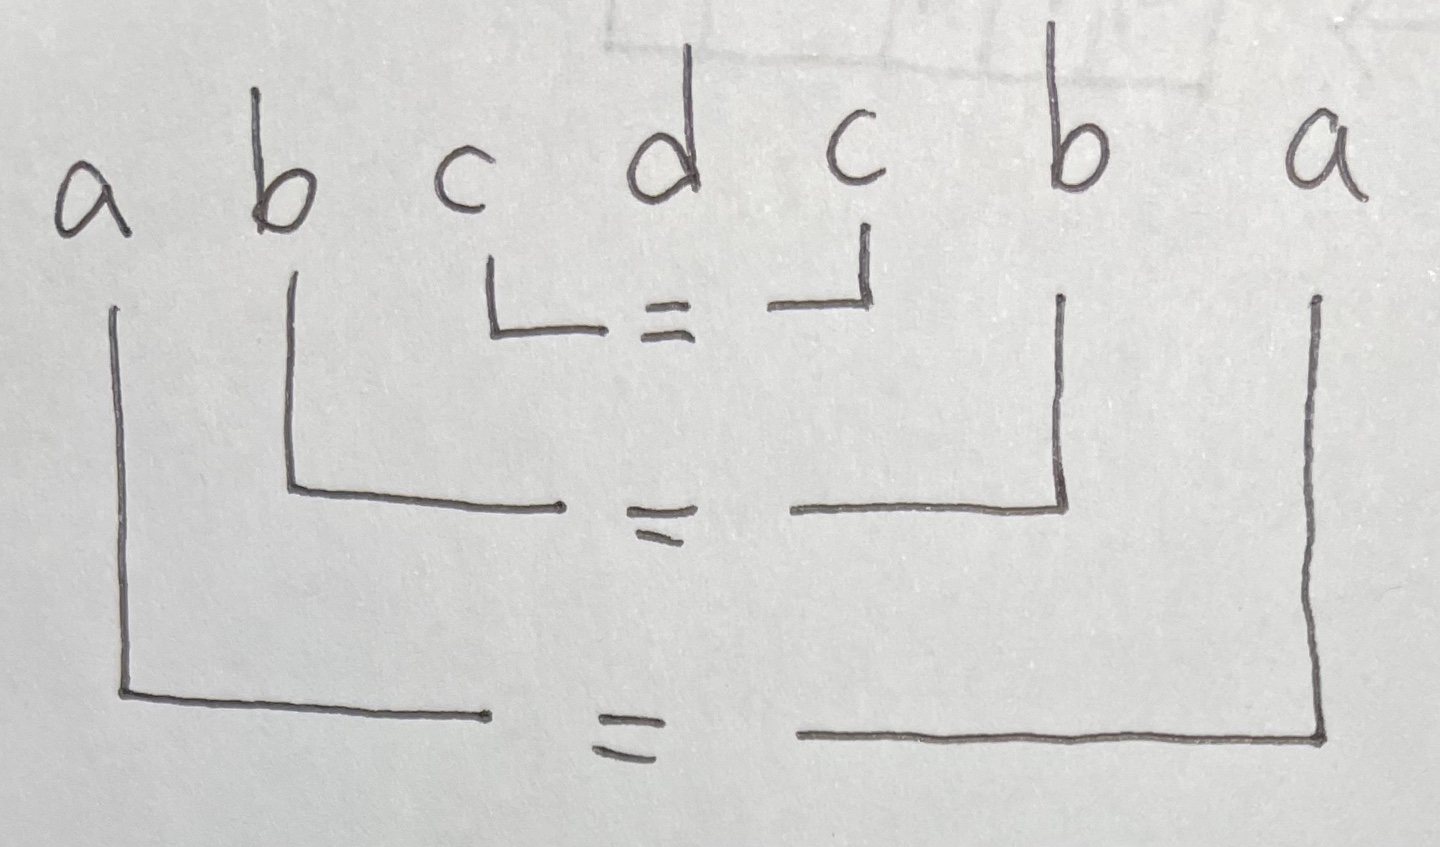 a b c d c b a
=
=
=